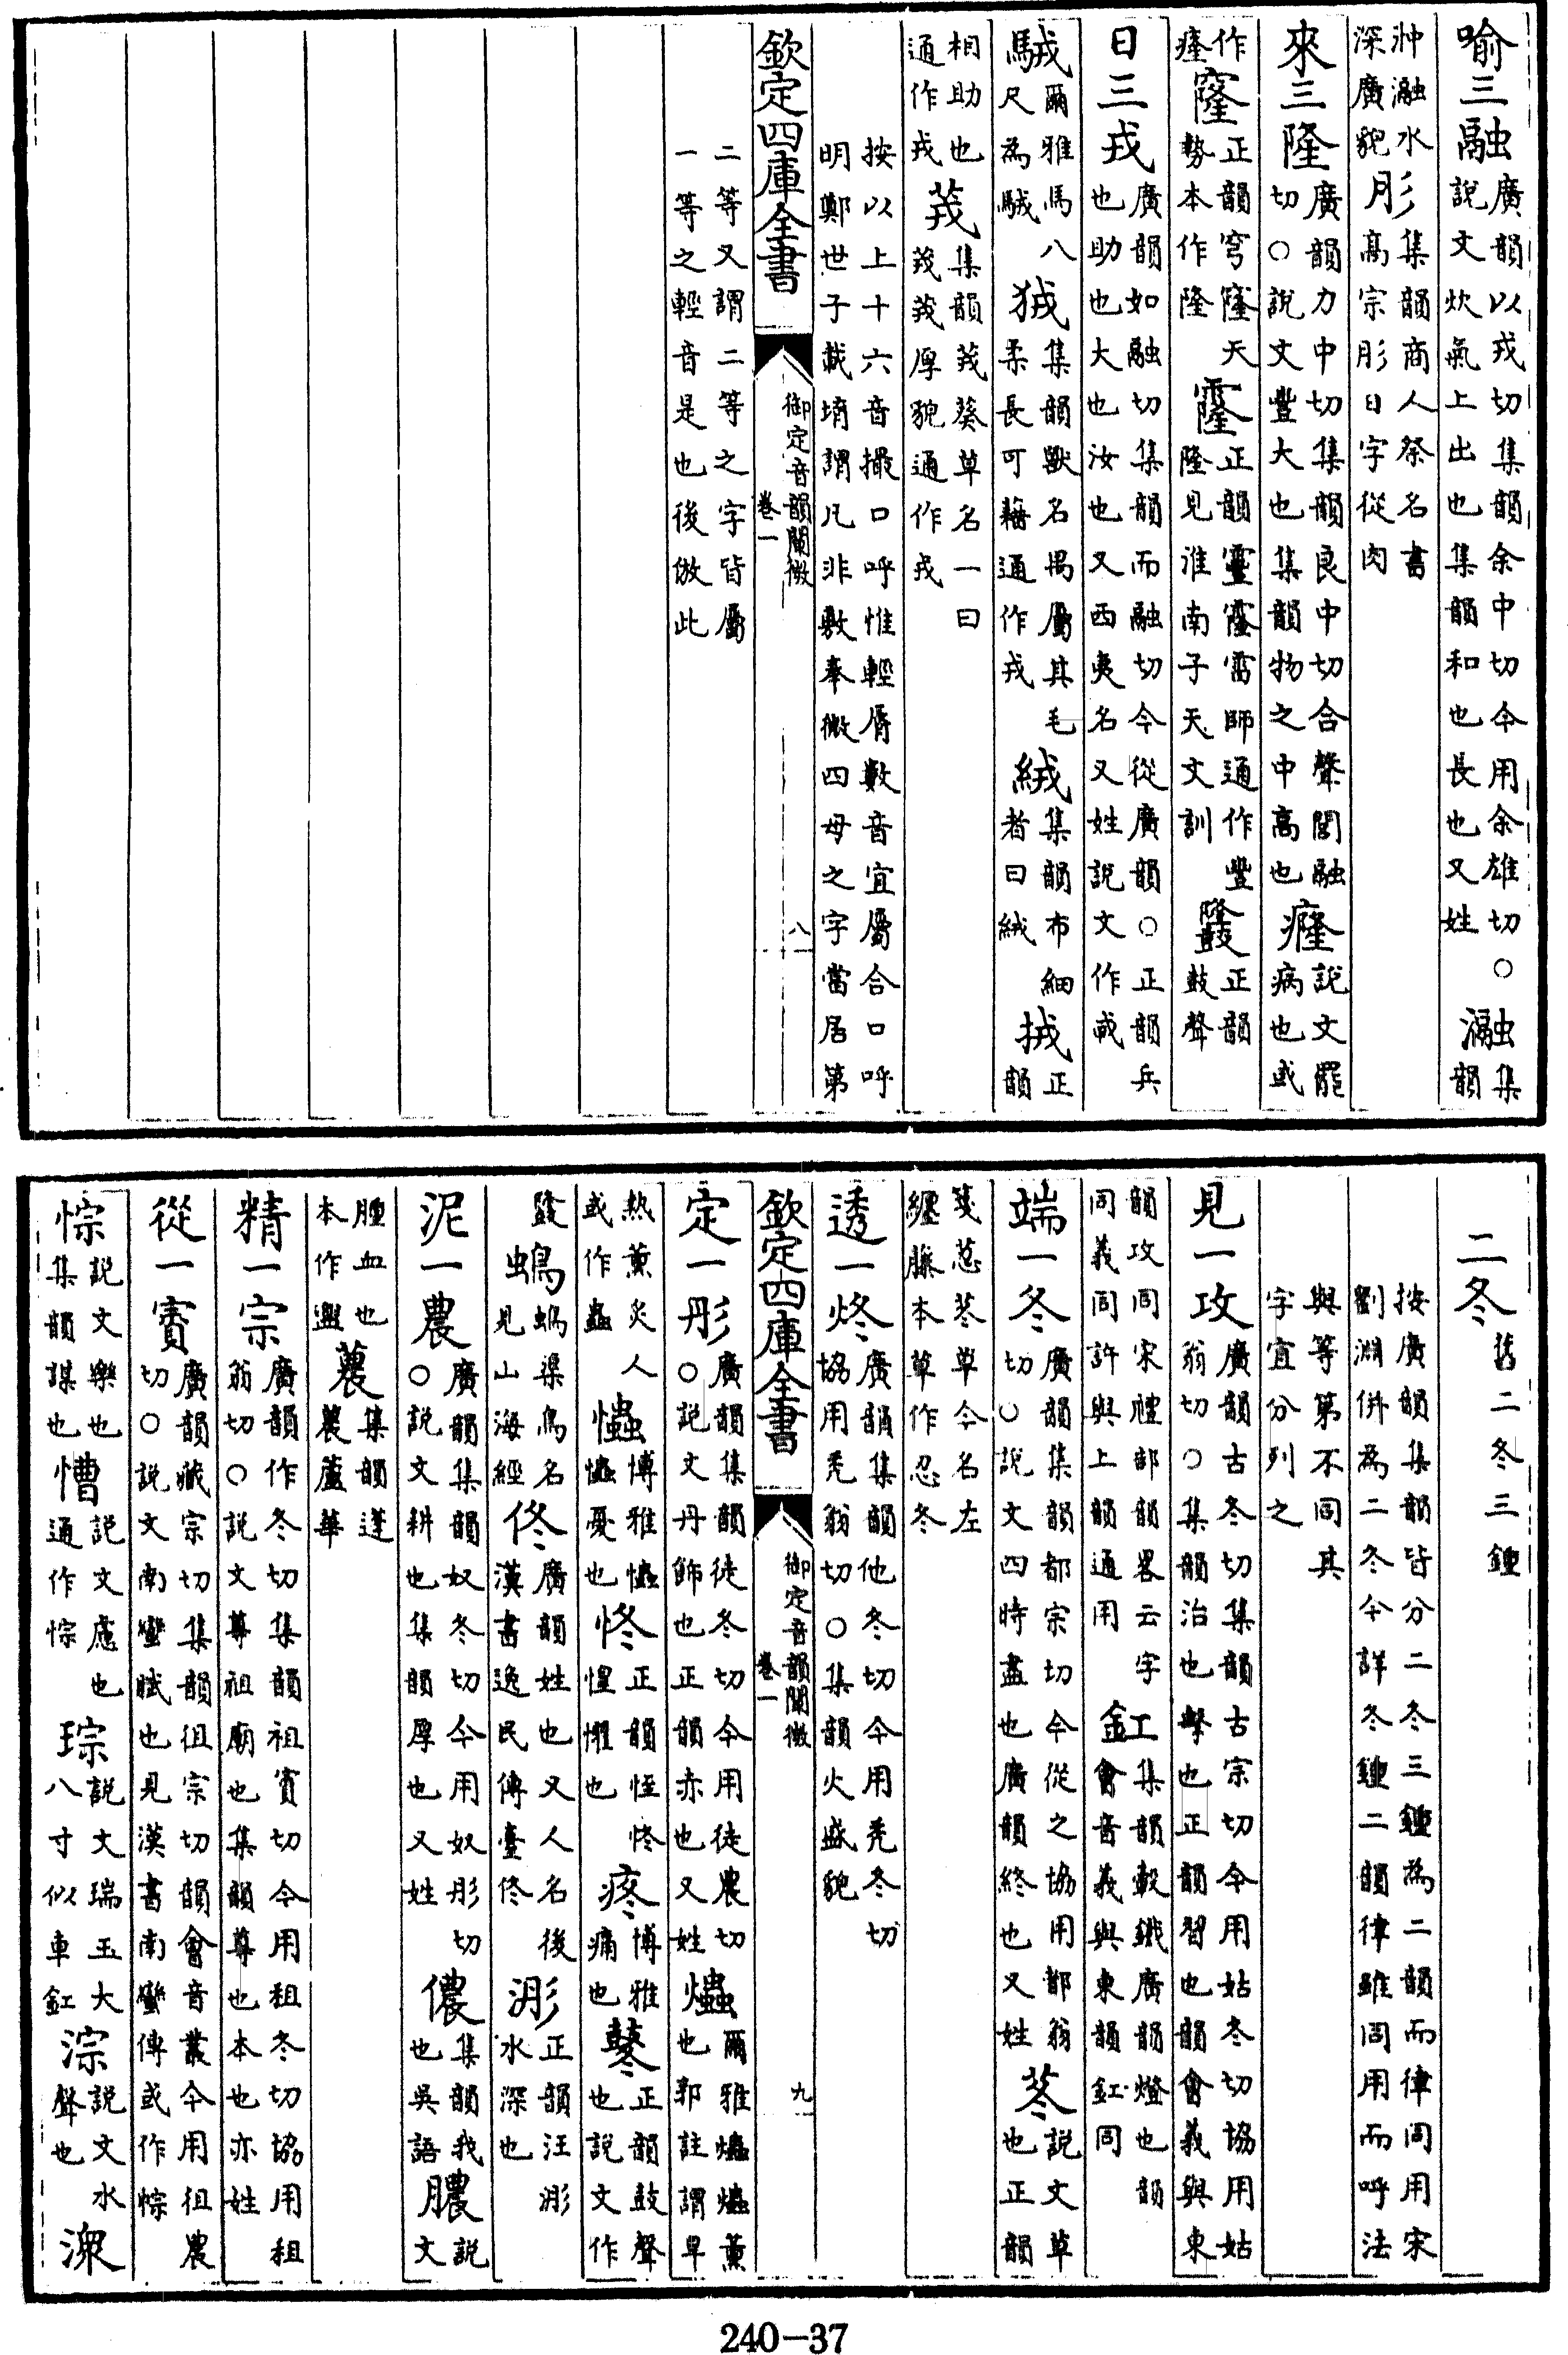 喻三融廣韻以戎切集韻余中切今用余雄切○說文炊氣上出也集韻和也長也又姓瀜集韻
沖瀜水深廣貌肜集韻商人祭名書高宗肜日字從肉
來三隆廣韻力中切集韻良中切合聲閭融切○說文豐大也集韻物之中高也癃說文罷病也或
作𤸇窿正韻穹窿天勢本作隆霳正韻靊霳雷師通作豐隆見淮南子天文訓鼕正韻鼓聲
日三戎廣韻如融切集韻而融切今從廣韻○正韻兵也助也大也汝也又西夷名又姓說文作㦴
駥爾雅馬八尺為駥狨集韻獸名禺屬其毛柔長可藉通作戎絨集韻布細者曰絨㧡正韻
相助也通作戎茙集韻茙葵草名一曰茙茙厚貌通作戎
按以上十六音撮口呼惟輕脣數音宜屬合口呼
明鄭世子載堉謂凡非敷奉微四母之字當居第
欽定四庫全書 御定音韻闡微 卷一 八
二等又謂二等之字皆屬
一等之輕音是也後倣此
二冬舊二冬三鍾
按廣韻集韻皆分二冬三鍾為二韻而律同用宋
劉淵併為二冬今詳冬鍾二韻律雖同用而呼法
與等第不同其
字宜分列之
見一攻廣韻古冬切集韻古宗切今用姑冬切協用姑翁切○集韻治也擊也正韻習也韻會義與東
韻攻同宋禮部韻畧云字同義同許與上韻通用釭集韻轂鐵廣韻燈也韻會音義與東韻釭同
端一冬廣韻集韻都宗切今從之協用都翁切○說文四時盡也廣韻終也又姓苳說文草也正韻
葰葱苳草今名左纏藤本草作忍冬
透一炵廣韻集韻他冬切今用禿冬切協用禿翁切○集韻火盛貌
欽定四庫全書 御定音韻闡微 卷一 九
定一彤廣韻集韻徒冬切今用徒農切○說文丹飾也正韻赤也又姓爞爾雅爞爞薰也郭註謂旱
熱薰炙人或作蟲𢥞博雅𢥞𢥞憂也佟正韻恇佟惶懼也疼博雅痛也鼕正韻鼓聲也說文作
鼟鴢鴢渠鳥名見山海經佟廣韻姓也又人名後漢書逸民傳臺佟浵正韻汪浵水深也
泥一農廣韻集韻奴冬切今用奴彤切○說文耕也集韻厚也又姓儂集韻我也吳語膿說文
腫血也本作盥蕽集韻蓬蕽蘆華
精一宗廣韻作冬切集韻祖賨切今用租冬切協用租翁切○說文尊祖廟也集韻尊也本也亦姓
從一賨廣韻藏宗切集韻徂宗切韻會音叢今用徂農切○說文南蠻賦也見漢書南蠻傳或作悰
悰說文樂也集韻謀也慒說文慮也通作悰琮說文瑞玉大八寸似車釭淙說文水聲也潨
240—37